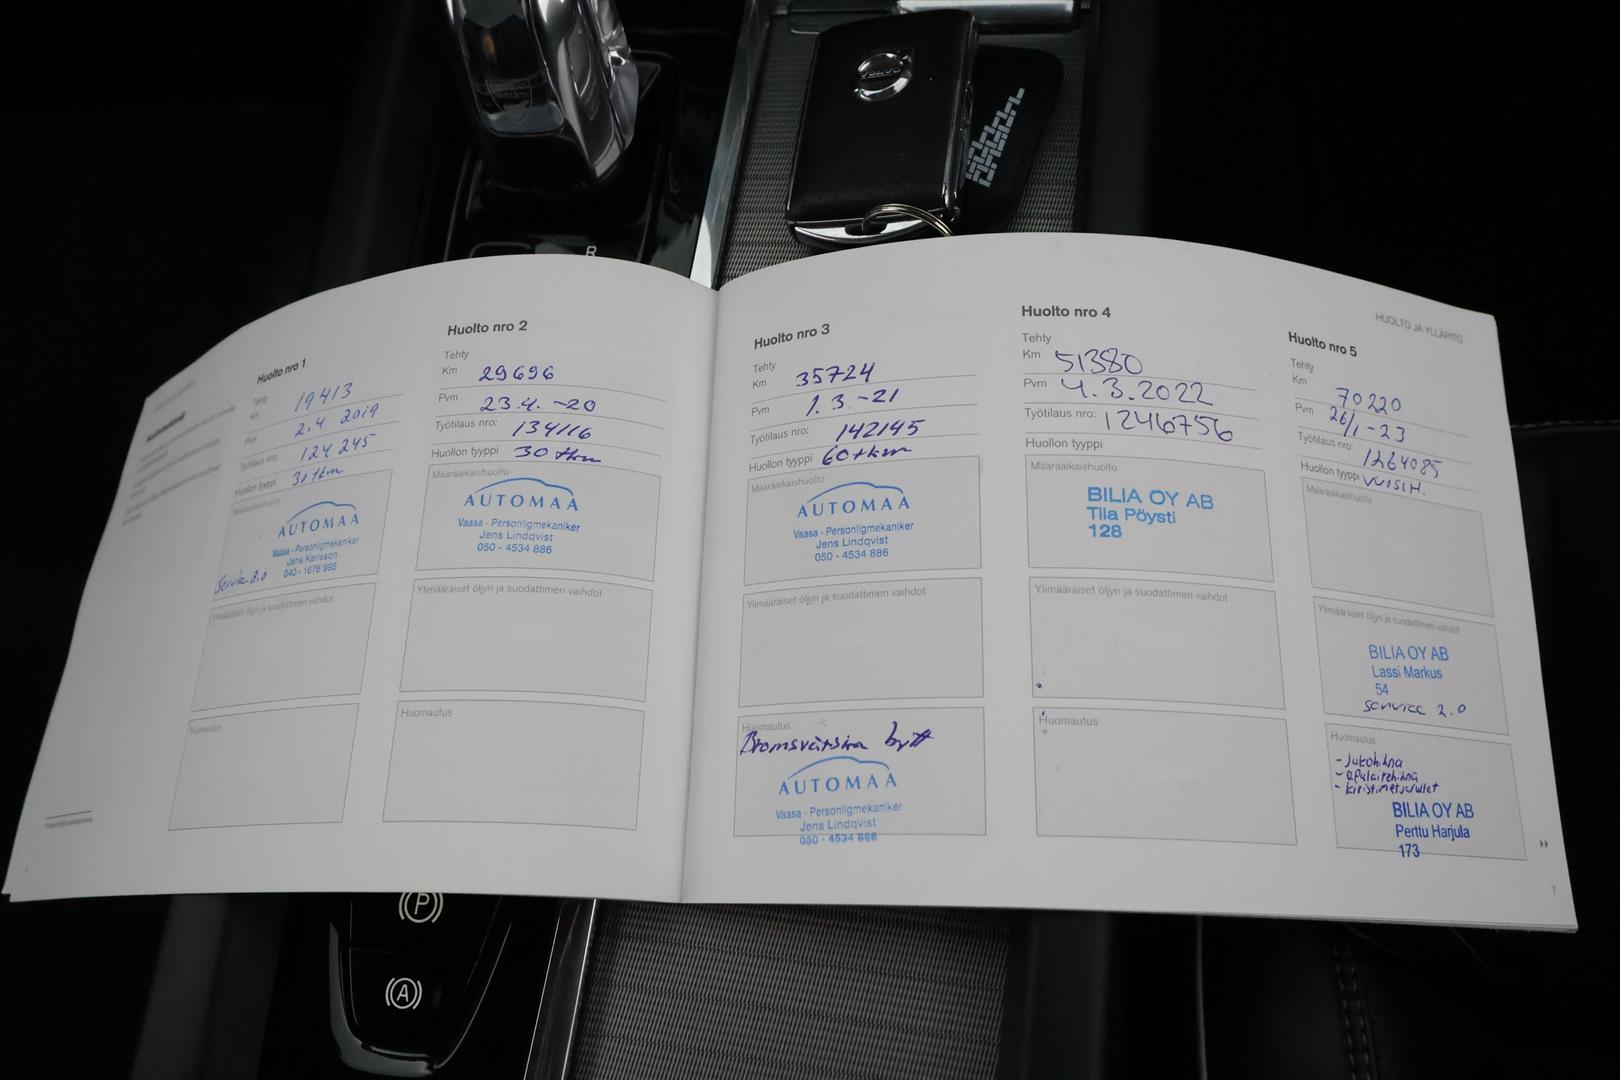 VOLVO
R
HUOLTO JA YLLÄPITO
Huolto nro 1
Tehty
Km 19413
Pvm 2.4 2019
Työtilaus nro: 124 245
Huollon tyyppi 30 tkm
Määräaikaishuolto
AUTOMAA
Vaasa - Personligmekaniker
Jens Karlsson
040 - 1676 995
Service 2.0
Ylimääräiset öljyn ja suodattimen vaihdot
Huomautus
Huolto nro 2
Tehty
Km 29696
Pvm 23.4. -20
Työtilaus nro: 134116
Huollon tyyppi 30 tkm
Määräaikaishuolto
AUTOMAA
Vaasa - Personligmekaniker
Jens Lindqvist
050 - 4534 886
Ylimääräiset öljyn ja suodattimen vaihdot
Huomautus
Huolto nro 3
Tehty
Km 35724
Pvm 1.3. -21
Työtilaus nro: 142145
Huollon tyyppi 60 tkm
Määräaikaishuolto
AUTOMAA
Vaasa - Personligmekaniker
Jens Lindqvist
050 - 4534 886
Ylimääräiset öljyn ja suodattimen vaihdot
Huomautus
Bromsvätska bytt
AUTOMAA
Vaasa - Personligmekaniker
Jens Lindqvist
050 - 4534 886
Huolto nro 4
Tehty
Km 51380
Pvm 4.3.2022
Työtilaus nro: 1246756
Huollon tyyppi
Määräaikaishuolto
BILIA OY AB
Tiia Pöysti
128
Ylimääräiset öljyn ja suodattimen vaihdot
Huomautus
Huolto nro 5
Tehty
Km 70220
Pvm 26/1 -23
Työtilaus nro: 1264085
Huollon tyyppi VUOSIH.
Määräaikaishuolto
Ylimääräiset öljyn ja suodattimen vaihdot
BILIA OY AB
Lassi Markus
54
Service 2.0
Huomautus
- Jakohihna
- apulaitehihna
- kiristimet, rullat
BILIA OY AB
Perttu Harjula
173
7
P
A